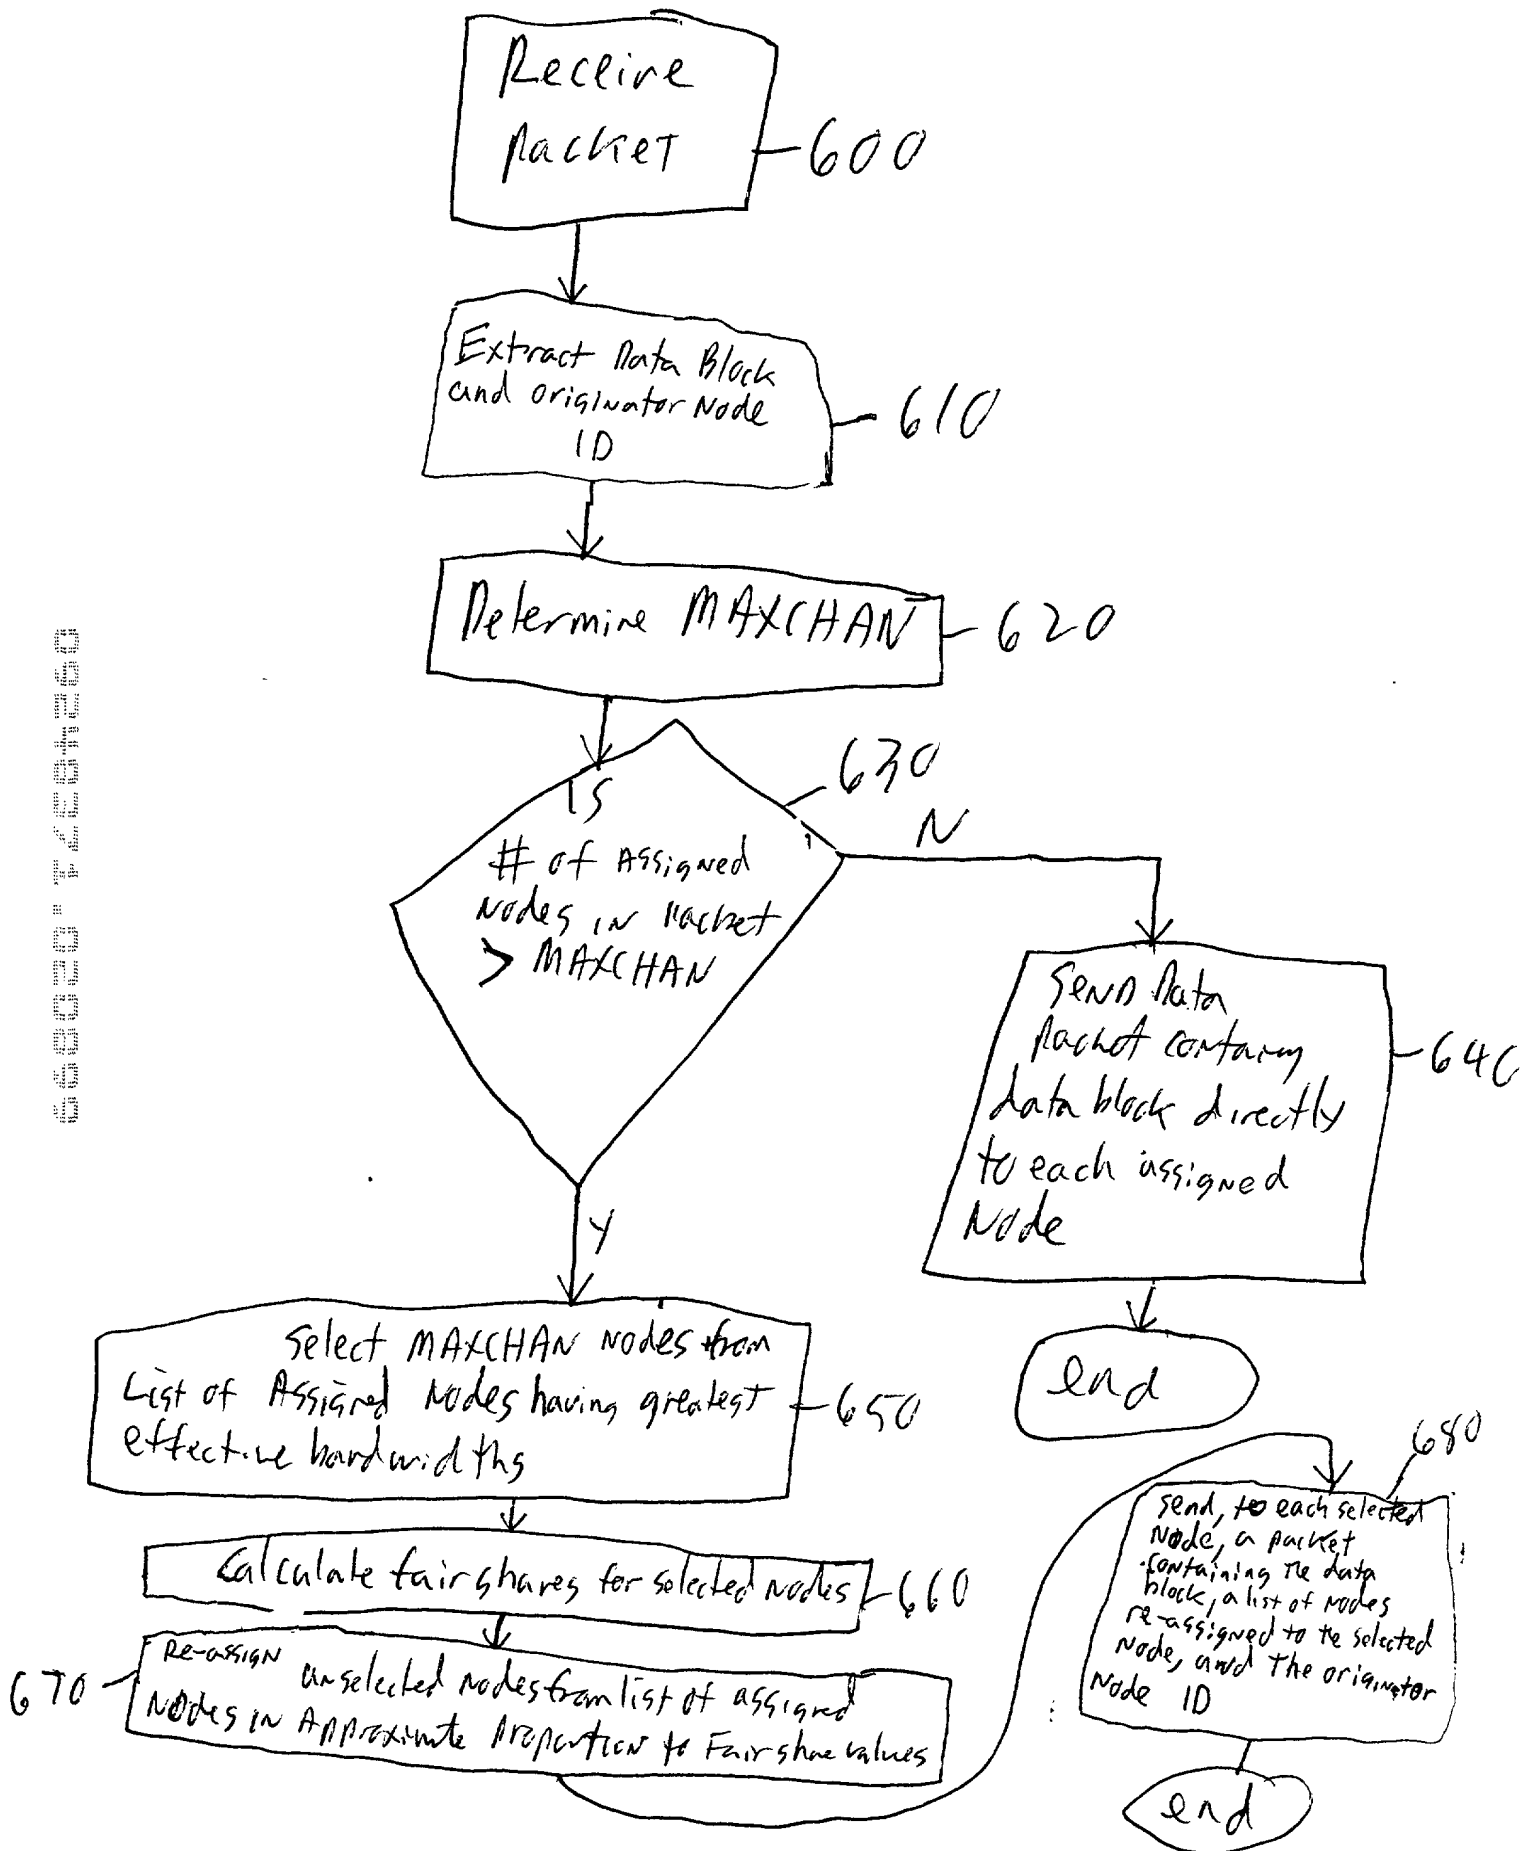 Receive
Packet
600
Extract Data Block
and originator Node
ID
610
Determine MAXCHAN
620
630
Is
# of Assigned
Nodes in Packet
> MAXCHAN
N
Send Data
Packet containing
data block directly
to each assigned
Node
640
end
Y
Select MAXCHAN Nodes from
List of Assigned Nodes having greatest
effective bandwidths
650
Calculate fair shares for selected nodes
660
Re-assign unselected nodes from list of assigned
Nodes in Approximate Proportion to Fair share values
670
680
send, to each selected
Node, a packet
containing the data
block, a list of nodes
re-assigned to the selected
Node, and The originator
Node ID
end